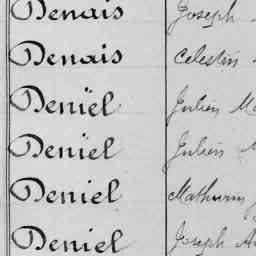 Denais Joseph
Denais Celestin
Deniël Julien
Deniel Julien
Deniel Mathurin
Deniel Joseph